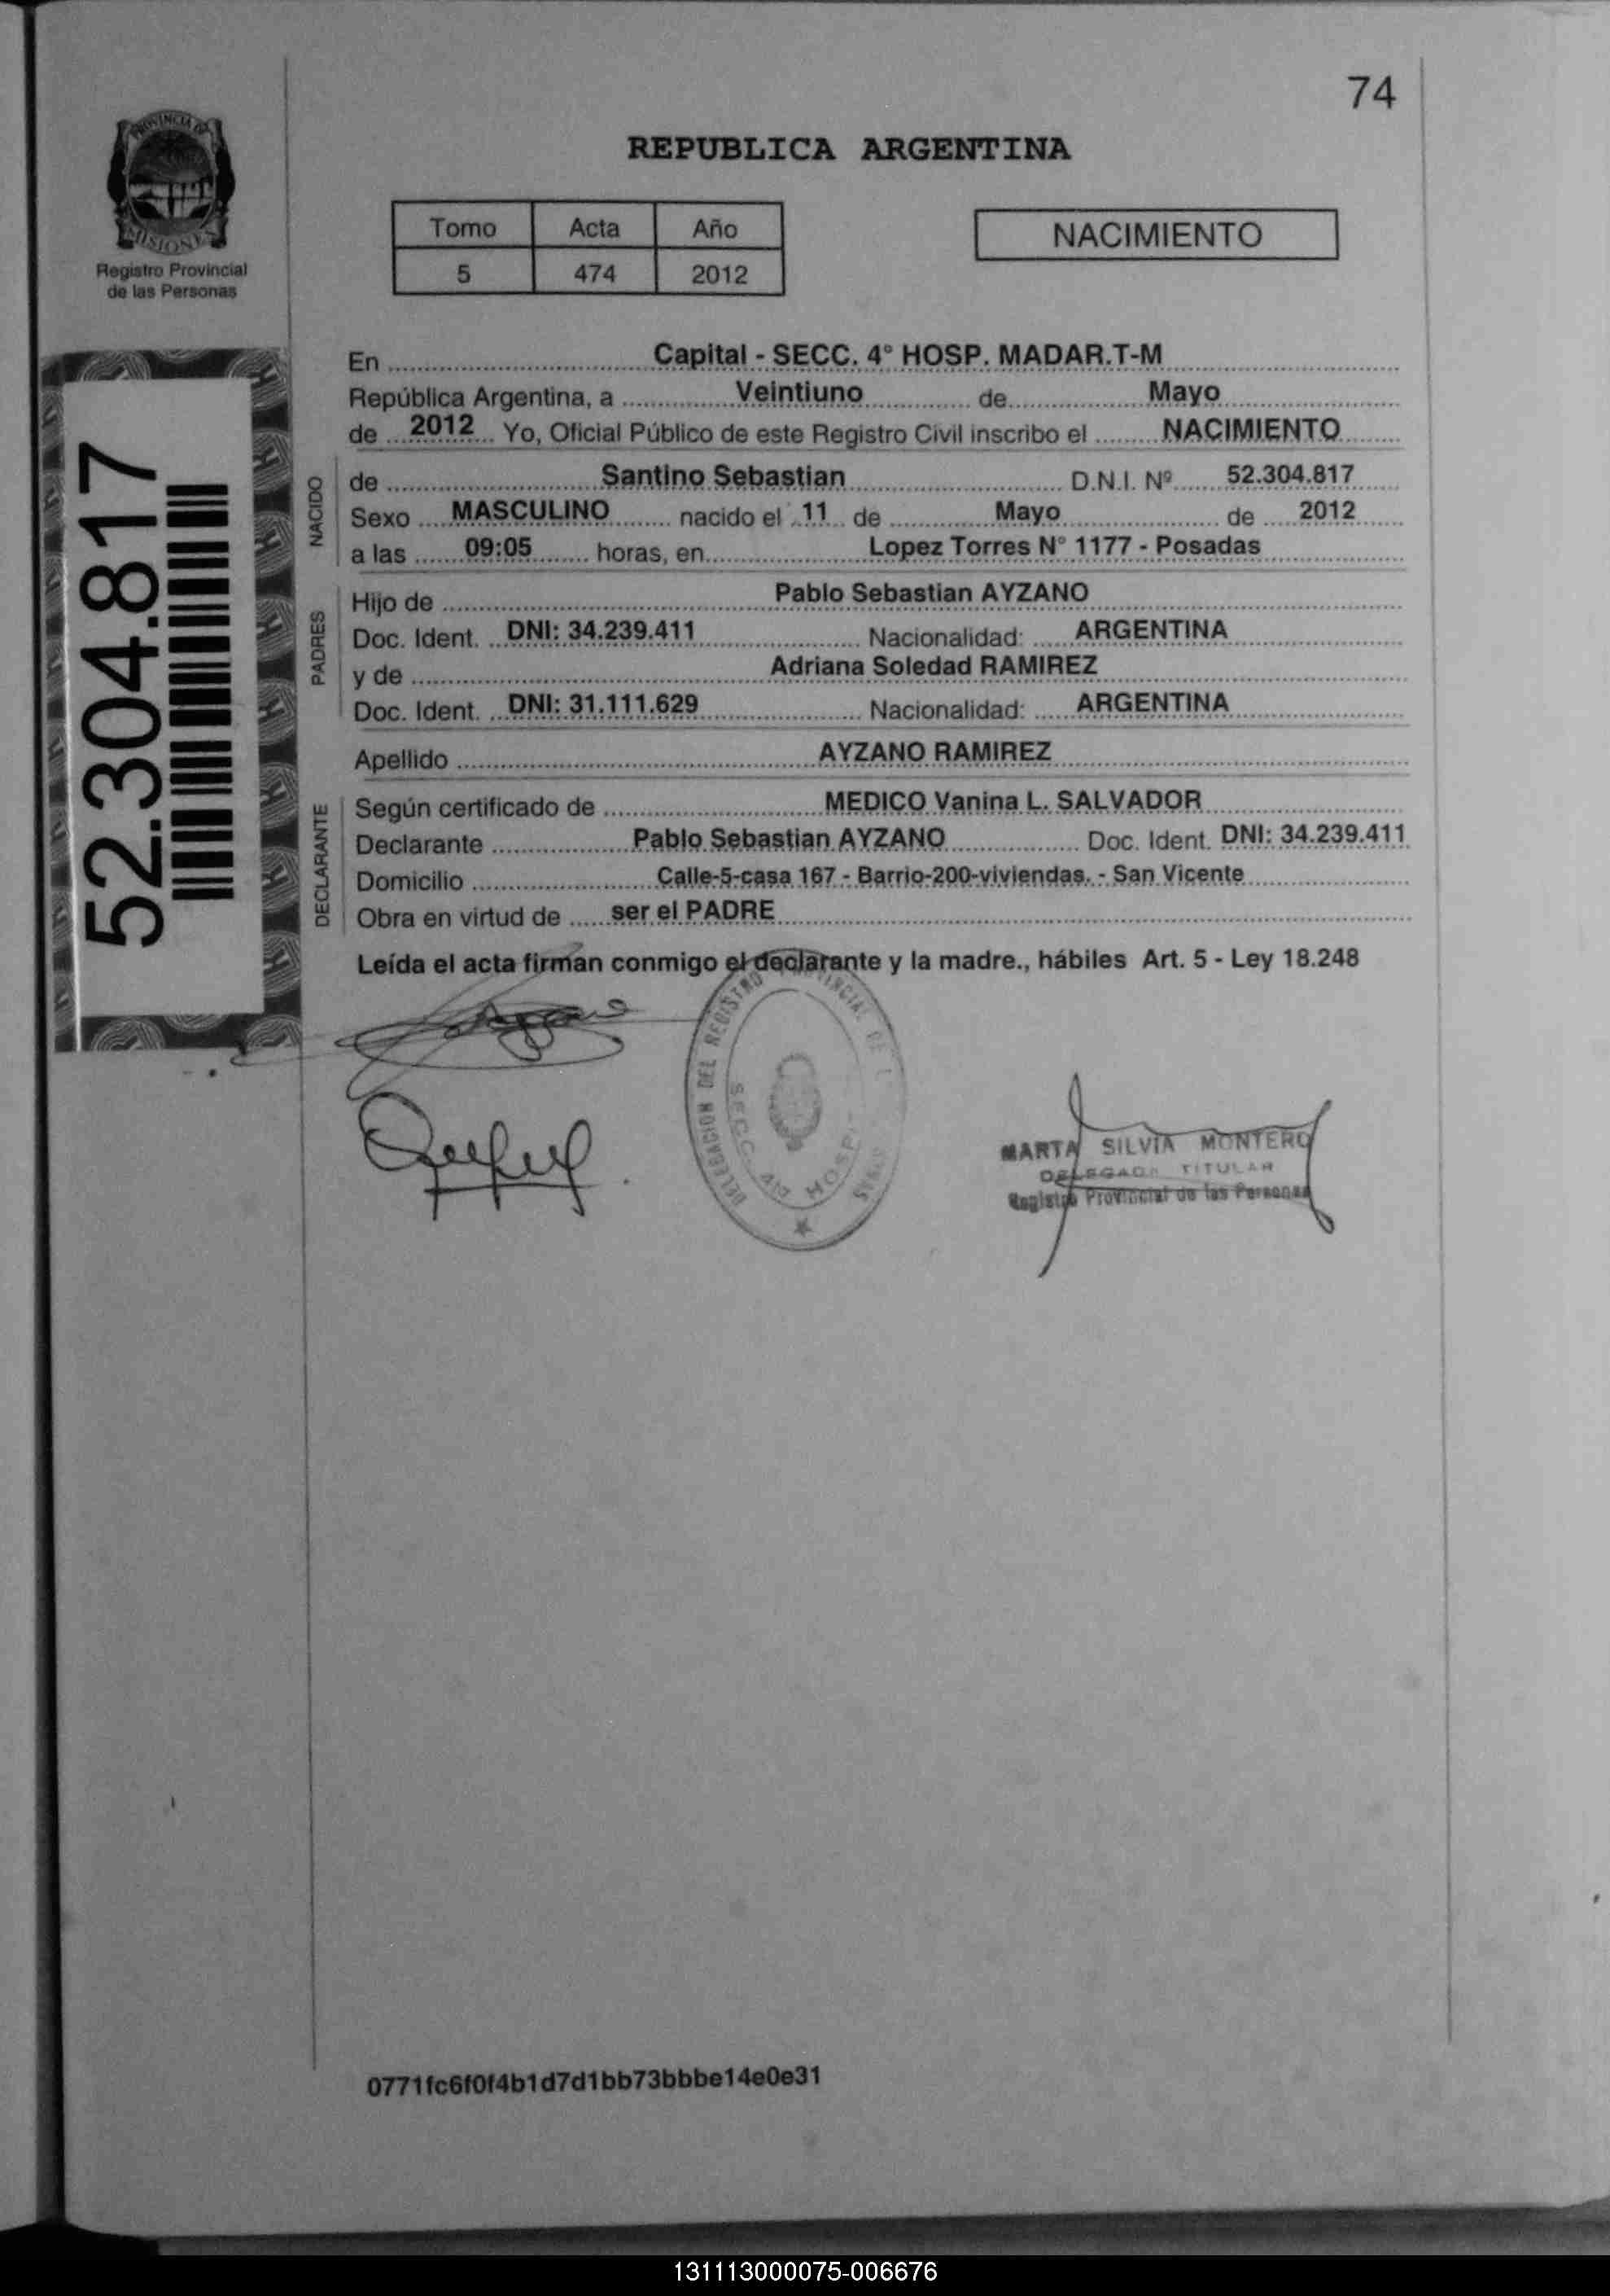 74
PROVINCIA DE
MISIONES
Registro Provincial
de las Personas
REPUBLICA ARGENTINA
Tomo Acta Año
5 474 2012
NACIMIENTO
52.304.817
En Capital - SECC. 4° HOSP. MADAR.T-M
República Argentina, a Veintiuno de Mayo
de 2012 Yo, Oficial Público de este Registro Civil inscribo el NACIMIENTO
NACIDO
de Santino Sebastian D.N.I. Nº 52.304.817
Sexo MASCULINO nacido el 11 de Mayo de 2012
a las 09:05 horas, en Lopez Torres N° 1177 - Posadas
PADRES
Hijo de Pablo Sebastian AYZANO
Doc. Ident. DNI: 34.239.411 Nacionalidad: ARGENTINA
y de Adriana Soledad RAMIREZ
Doc. Ident. DNI: 31.111.629 Nacionalidad: ARGENTINA
Apellido AYZANO RAMIREZ
DECLARANTE
Según certificado de MEDICO Vanina L. SALVADOR
Declarante Pablo Sebastian AYZANO Doc. Ident. DNI: 34.239.411
Domicilio Calle-5-casa 167 - Barrio-200-viviendas. - San Vicente
Obra en virtud de ser el PADRE
Leída el acta firman conmigo el declarante y la madre., hábiles Art. 5 - Ley 18.248
DELEGACION DEL REGISTRO PROVINCIAL DE
SECC. 4ta HOSP.
MARTA SILVIA MONTERO
DELEGADA TITULAR
Registro Provincial de las Personas
0771fc6f0f4b1d7d1bb73bbbe14e0e31
131113000075-006676